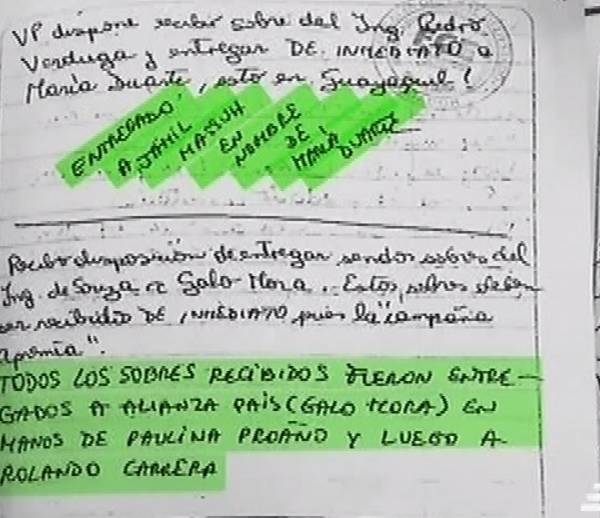 VP dispone recibir sobre del Ing. Pedro
Verduga y entregar DE INMEDIATO a
María Duarte, esto en Guayaquil!
ENTREGADO
A JAMIL
MASSUH
EN
NOMBRE
DE
MARIA
DUARTE
Recibo disposición de entregar sendos sobres del
Ing. de Souza a Galo Mora. Estos sobres deben
ser recibidos DE INMEDIATO pues la "campaña
apremia".
TODOS LOS SOBRES RECIBIDOS FUERON ENTRE-
GADOS A ALIANZA PAÍS (GALO MORA) EN
MANOS DE PAULINA PROAÑO Y LUEGO A
ROLANDO CARRERA